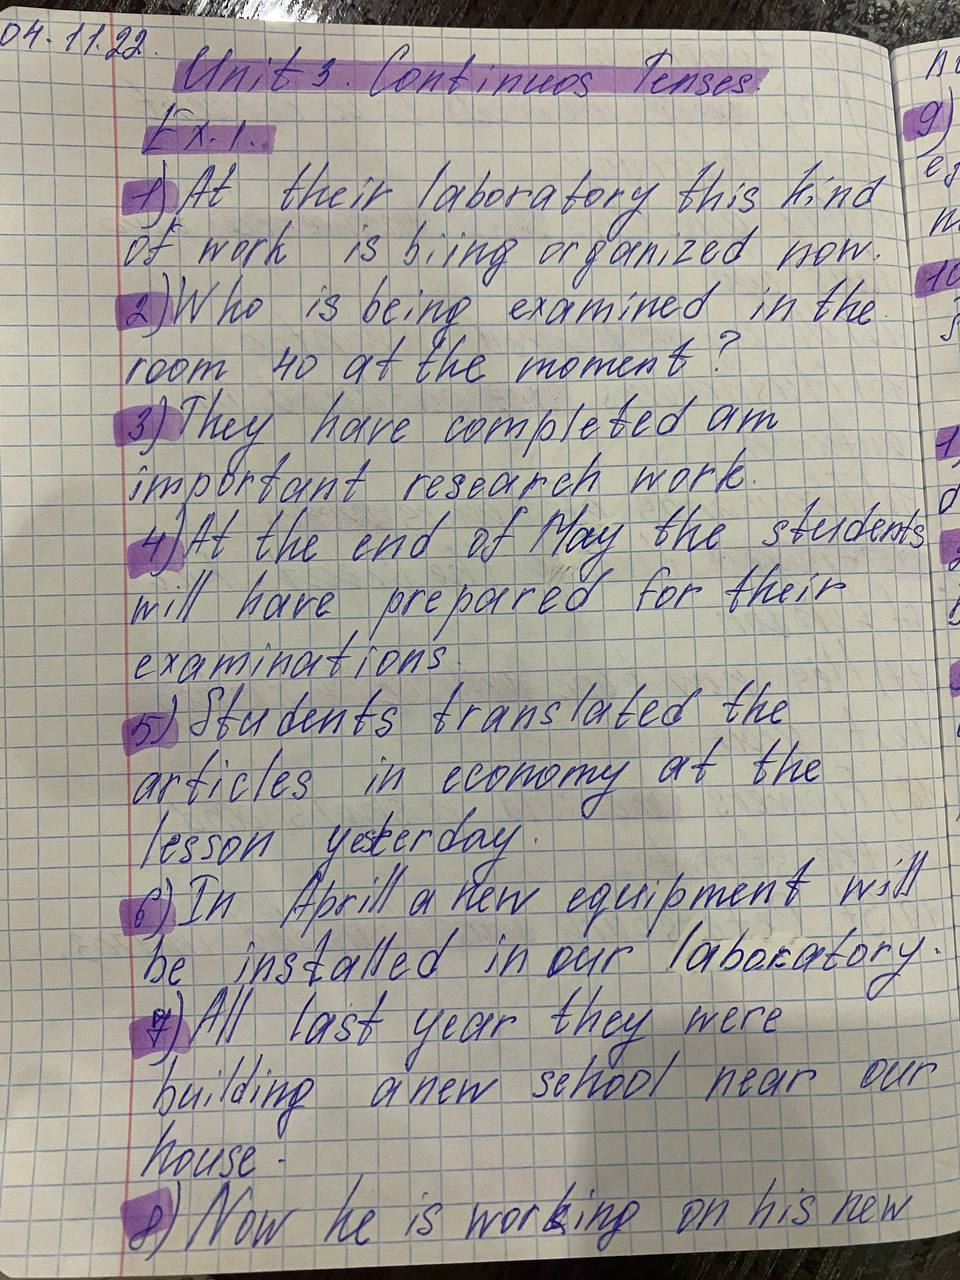 04.11.22.
Unit 3. Continuos Tenses.
Ex.1.
1) At their laboratory this kind
of work is biing organized now.
2) Who is being examined in the
room 40 at the moment?
3) They have completed am
important research work.
4) At the end of May the students
will have prepared for their
examinations.
5) Students translated the
articles in economy at the
lesson yesterday.
6) In Aprill a new equipment will
be installed in our laboratory.
7) All last year they were
building a new school near our
house.
8) Now he is working on his new
9)
10